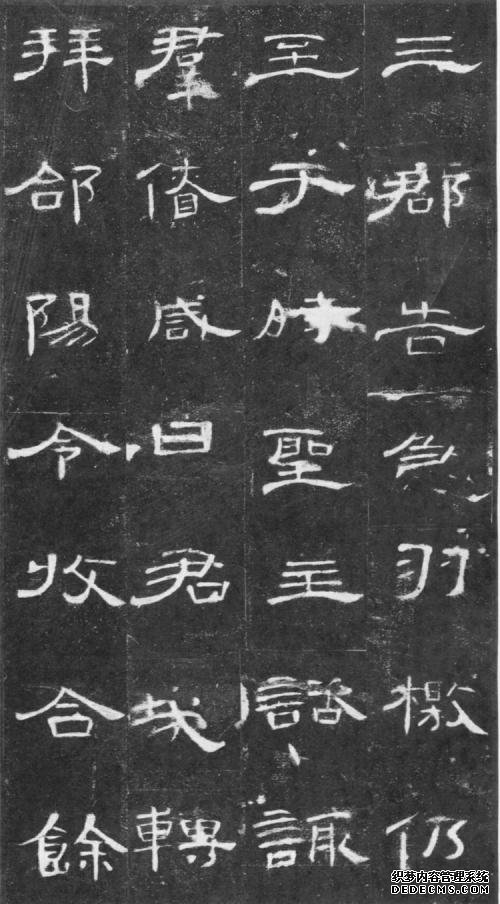 三郡告急羽檄仍
至于時聖主諮諏
羣僚咸曰君哉轉
拜郃陽令收合餘
织梦内容管理系统
DEDECMS.COM